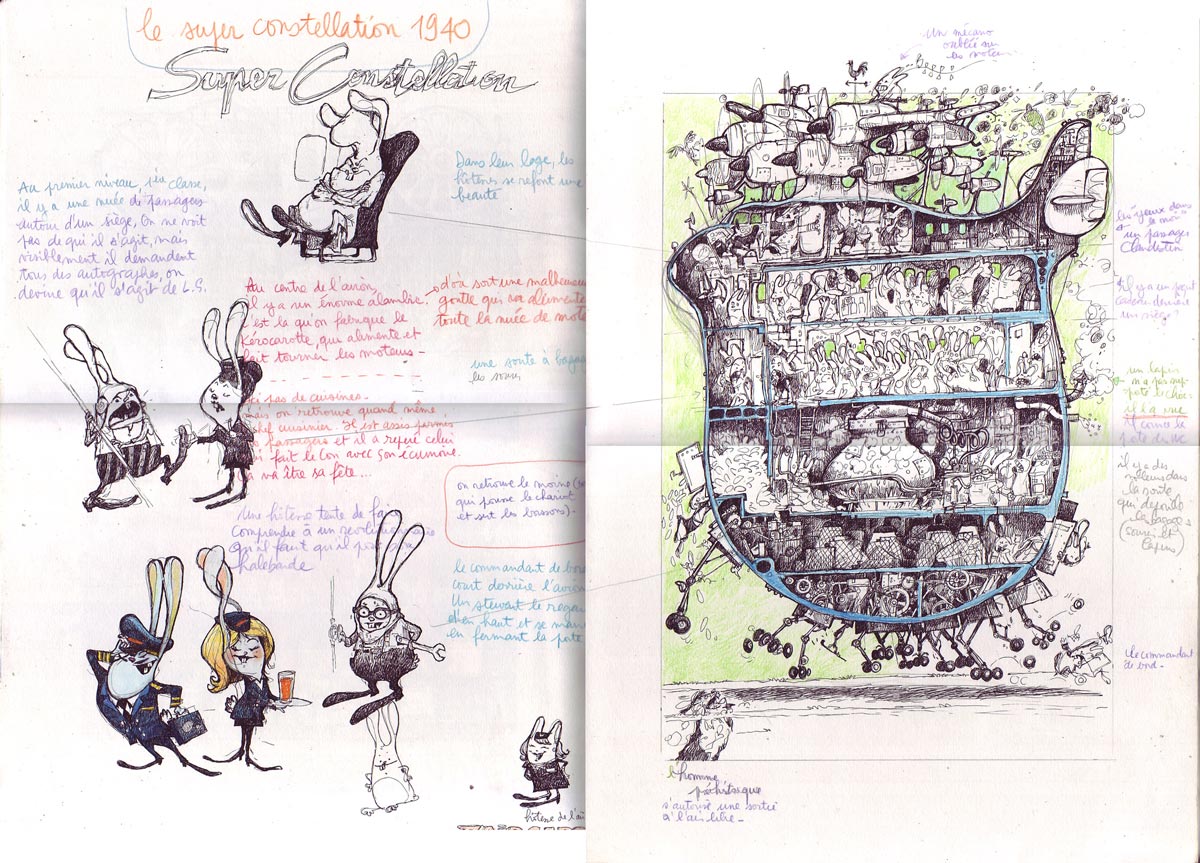 le super constellation 1940
Super Constellation
Au premier niveau, 1ère classe,
il y a une nuée de passagers
autour d'un siège, On ne voit
pas de qui il s'agit, mais
visiblement il demandent
tous des autographes, on
devine qu'il s'agit de L.G.
Dans leur loge, les
hôtesses se refont une
beauté
Au centre de l'avion,
il y a un énorme alambic,
c'est là qu'on fabrique le
Kérocarotte, qui alimente et
fait tourner les moteurs -
d'où sort une malheureuse
goutte qui va alimenter
toute la nuée de mote
une soute à bagag
les souris
pas de cuisines.
mais on retrouve quand même
chef cuisinier. Il est assis parmis
passagers et il a repéré celui
fait le con avec son écumoire.
va être sa fête...
on retrouve le moine
qui pousse le chariot
et sert les boissons).
Une hôtesse tente de fai
comprendre à un
qu'il faut qu'il
hallebarde
le commandant de bord
court derrière l'avion
Un stewart le regar
d'en haut et se mar
en fermant la porte
hôtesse de l'air
Un mécano
oublié sur
les moteurs
Beep
les "yeux dans
le noir"
un passager
Clandestin
il y a un petit
cadeau derrière
un siège?
un lapin
n'a pas sup-
porté le choc
il a
porte du WC
il y a des
voleurs dans
la soute
qui
les bagages
(souris et
lapins)
le commandant
de bord -
l'homme
préhistorique
s'autorise une sortie
à l'air libre -